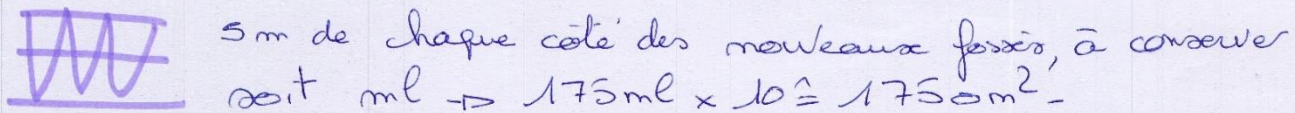 5m de chaque côté des nouveaux fossés, à conserver
soit ml → 175ml x 10 ≙ 1750m² -